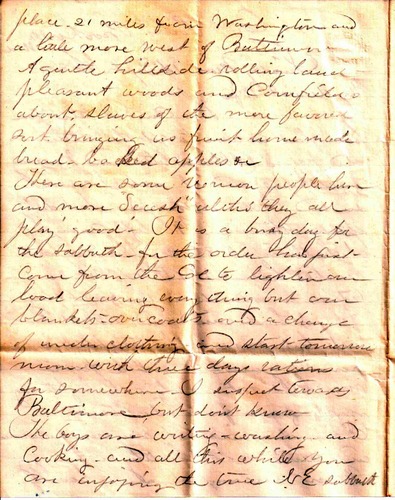 place. 21 miles from Washington and
a little more west of Baltimore
A gentle hillside rolling land
pleasant woods and Cornfields
about. slaves of the more favored
sort bringing us fruit home made
bread. baked apples &c
There are some Union people here
and more "Secesh" they all
play good. It is a busy day for
the sabbath - for the order has just
come from the Col to lighten our
load leaving everything but our
blankets - overcoats - and a change
of under clothing and start tomorrow
morn. with three days rations
for somewhere. I suspect towards
Baltimore but dont know
The boys are writing - washing - and
Cooking - and all this while you
are enjoying the true N.E. sabbath